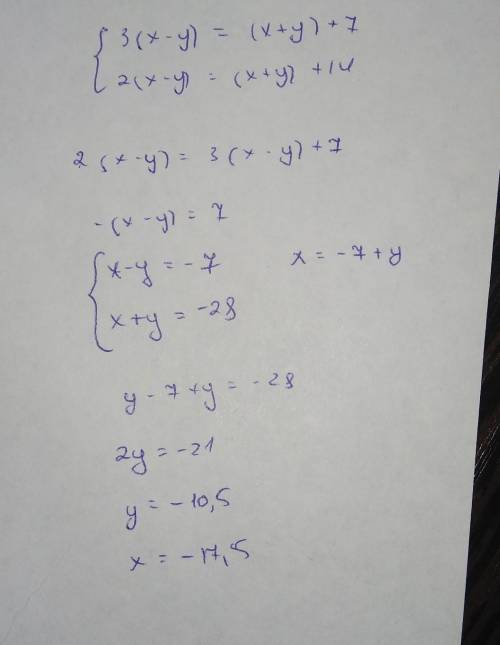 3(x-y) = (x+y)+7
2(x-y) = (x+y) +14
2(x-y) = 3(x-y)+7
-(x-y) = 7
x-y = -7 x = -7+y
x+y = -28
y-7+y = -28
2y = -21
y = -10,5
x = -17,5